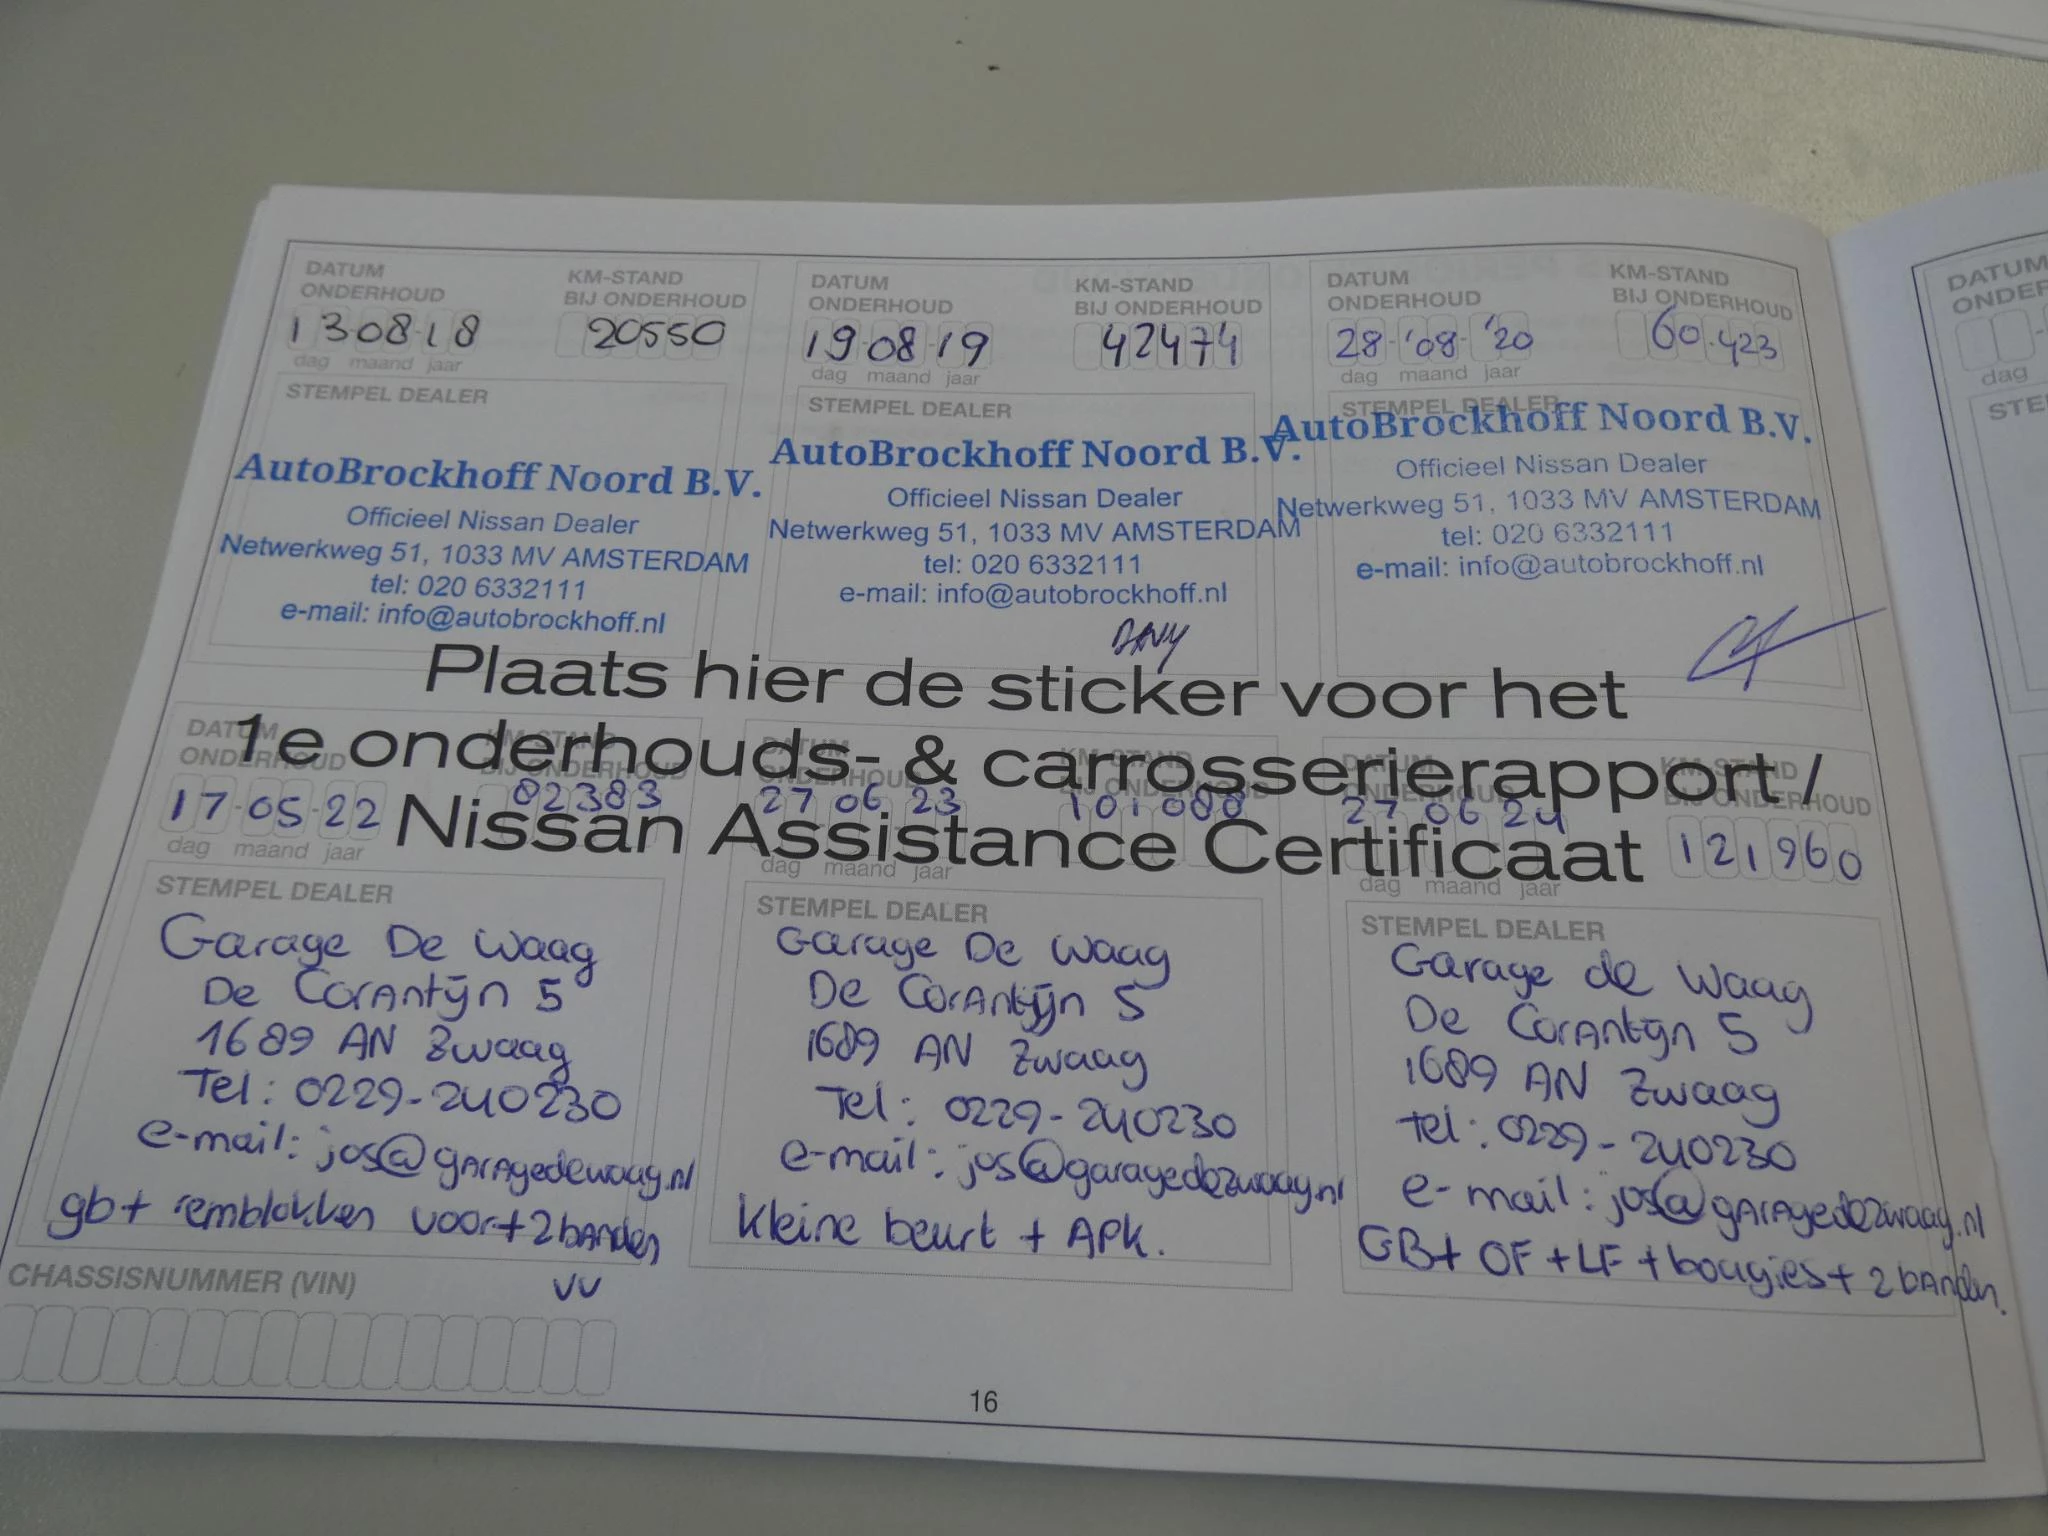 DATUM
ONDERHOUD
KM-STAND
BIJ ONDERHOUD
13 08 18
20550
dag maand jaar
STEMPEL DEALER
AutoBrockhoff Noord B.V.
Officieel Nissan Dealer
Netwerkweg 51, 1033 MV AMSTERDAM
tel: 020 6332111
e-mail: info@autobrockhoff.nl
DATUM
ONDERHOUD
KM-STAND
BIJ ONDERHOUD
19-08-19
42474
dag maand jaar
STEMPEL DEALER
AutoBrockhoff Noord B.V.
Officieel Nissan Dealer
Netwerkweg 51, 1033 MV AMSTERDAM
tel: 020 6332111
e-mail: info@autobrockhoff.nl
DANY
DATUM
ONDERHOUD
KM-STAND
BIJ ONDERHOUD
28-'08-'20
60.423
dag maand jaar
STEMPEL DEALER
AutoBrockhoff Noord B.V.
Officieel Nissan Dealer
Netwerkweg 51, 1033 MV AMSTERDAM
tel: 020 6332111
e-mail: info@autobrockhoff.nl
Plaats hier de sticker voor het
1e onderhouds- & carrosserierapport /
Nissan Assistance Certificaat
DATUM
ONDERHOUD
KM-STAND
BIJ ONDERHOUD
17-05-22
82383
dag maand jaar
STEMPEL DEALER
Garage De Waag
De Corantijn 5
1689 AN Zwaag
Tel: 0229-240230
e-mail: jos@garagedewaag.nl
gb+ remblokken voor+2banden
VV
DATUM
ONDERHOUD
KM-STAND
BIJ ONDERHOUD
27 06 23
101088
dag maand jaar
STEMPEL DEALER
Garage De Waag
De Corantijn 5
1689 AN Zwaag
Tel: 0229-240230
e-mail:
Kleine beurt + APK.
DATUM
ONDERHOUD
KM-STAND
BIJ ONDERHOUD
27 06 24
121960
dag maand jaar
STEMPEL DEALER
Garage de Waag
De Corantijn 5
1689 AN Zwaag
Tel: 0229-240230
e-mail:
GB+ OF + LF + bougies + 2 banden.
CHASSISNUMMER (VIN)
16